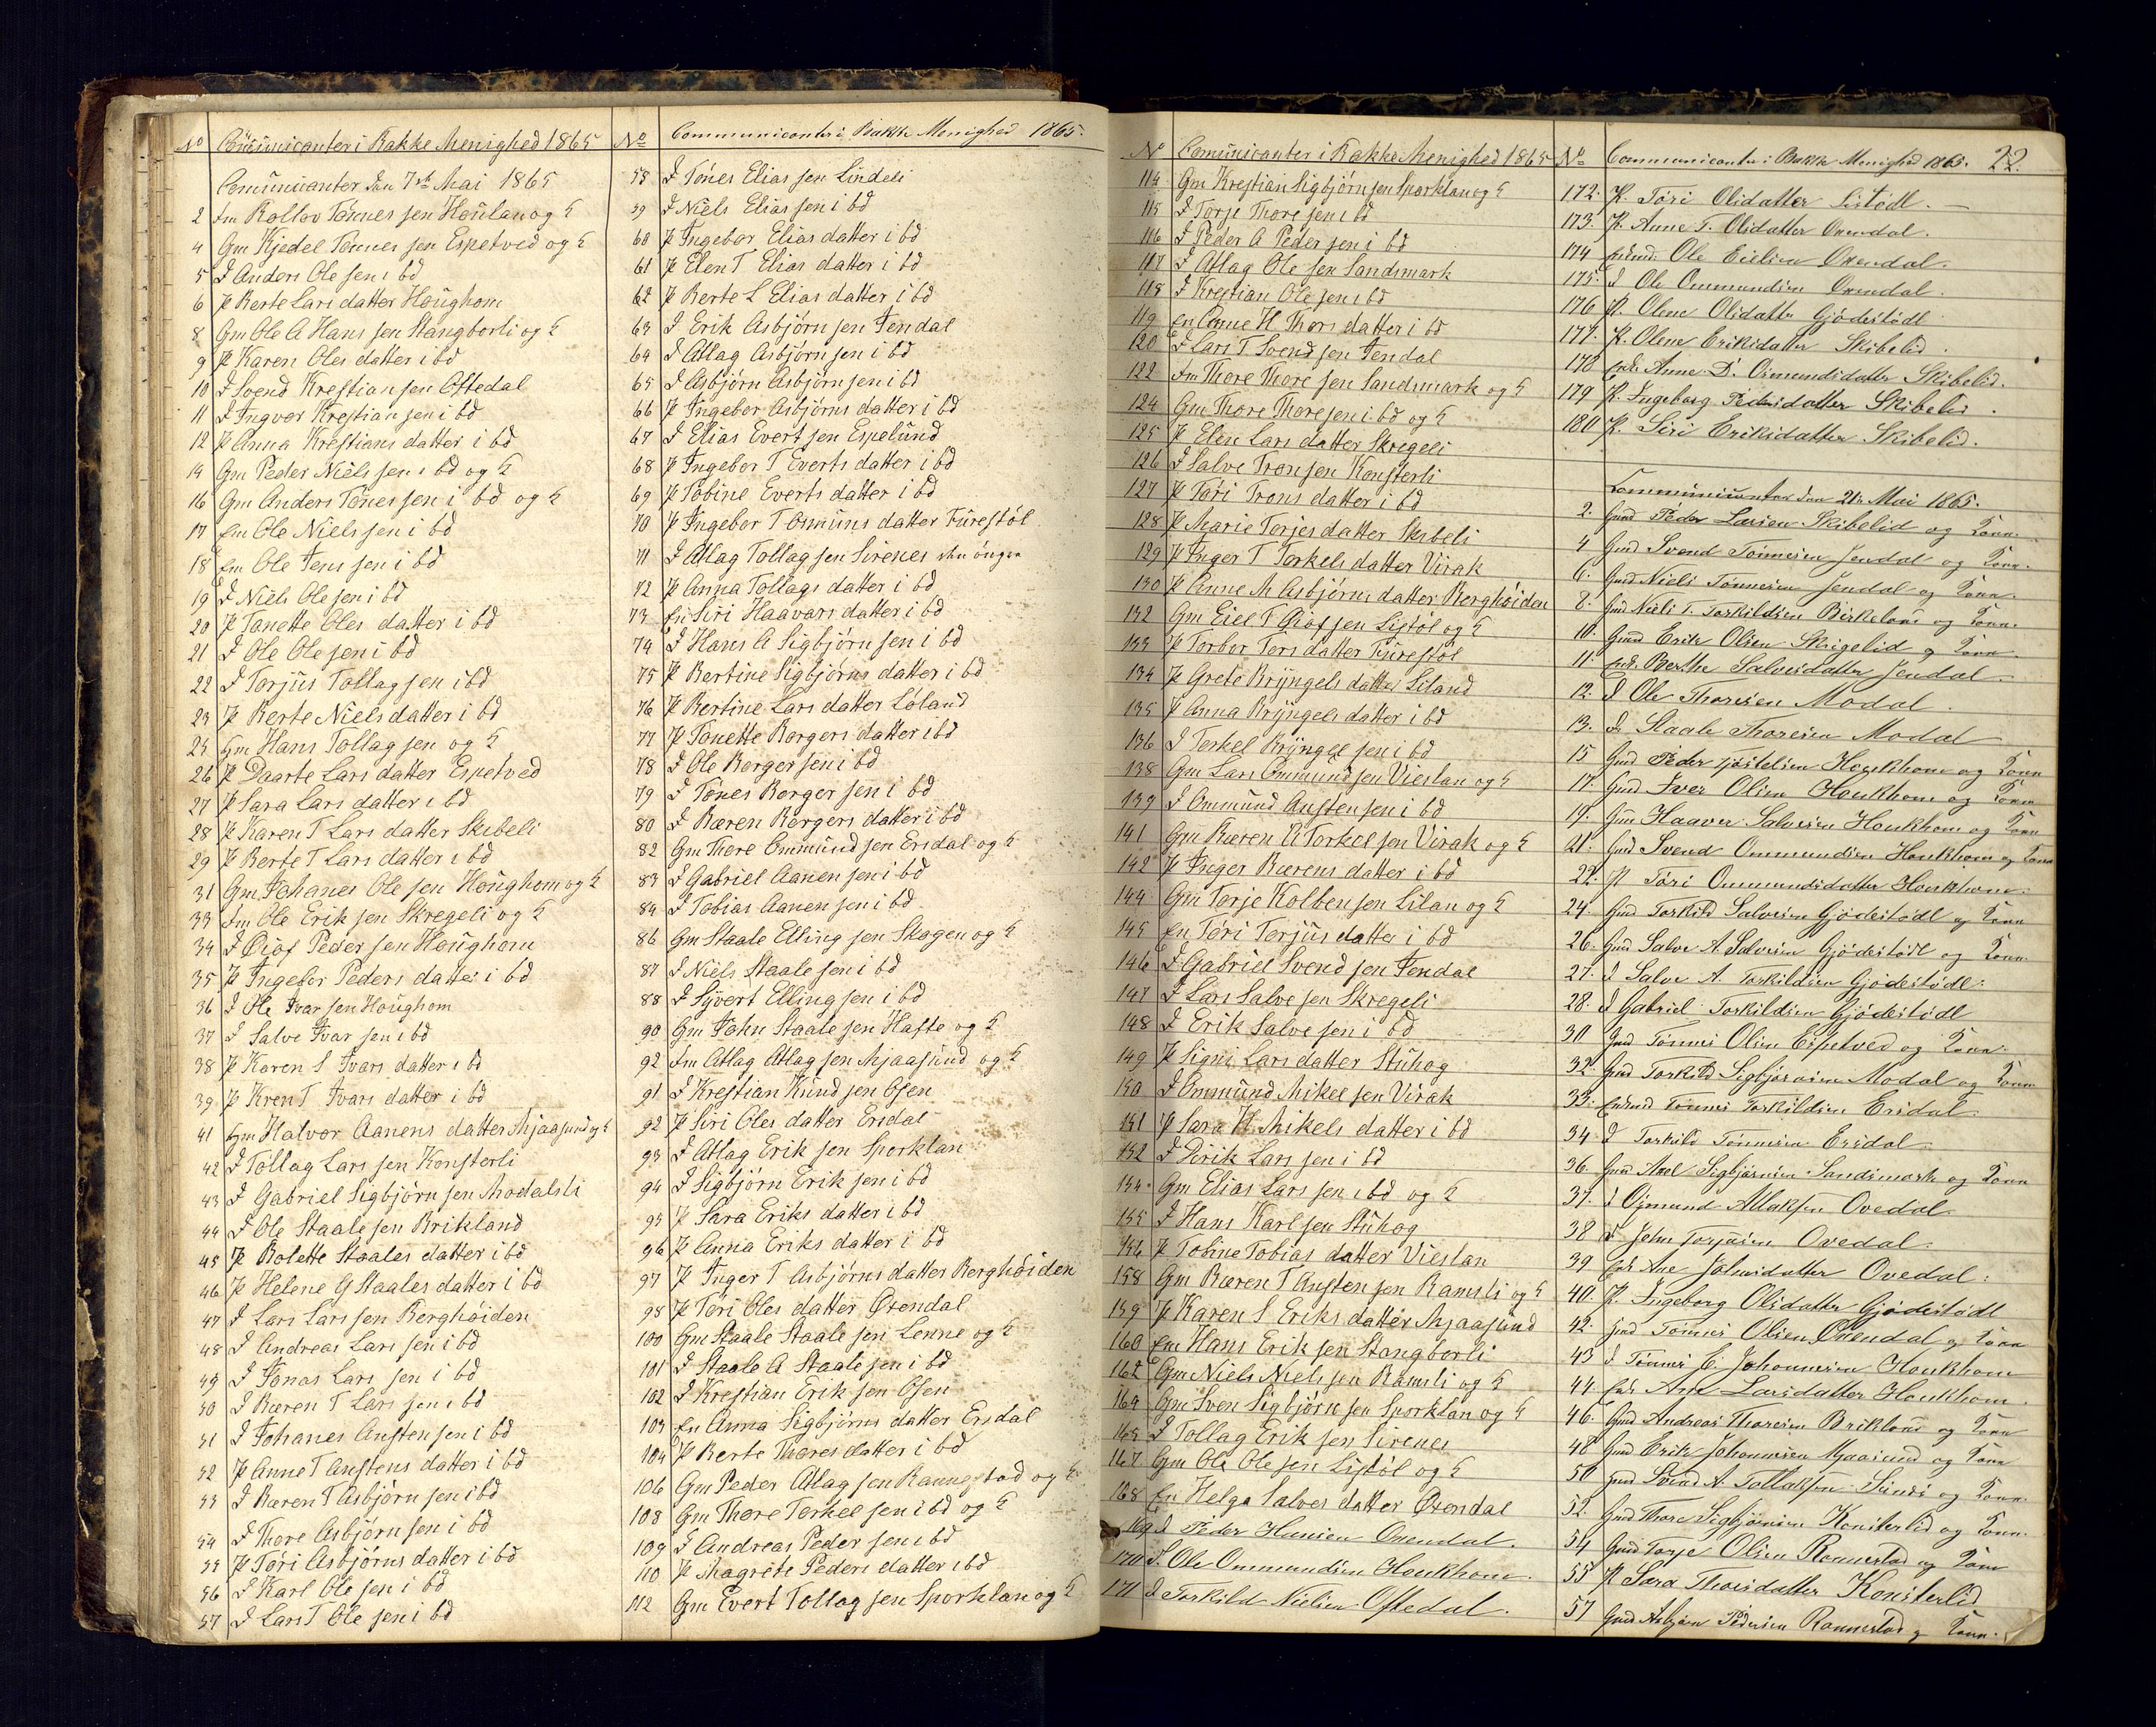 No Comunicanter i Bakke Menighed 1865
Comunicanter Den 7de Mai 1865
2 fm Rollov Tønnes sen Houlan og K
4 Gm Kjedel Tønnes sen Espetved og K
5 J Anders Ole sen i bd
6 P Berte Lars datter Houghom
8 Gm Ole A Hans sen Stangborli og K
9 P Karen Oles datter i bd
10 J Svend Krestian sen Oftedal
11 J Ingvor Krestian sen i bd
12 P Anna Krestians datter i bd
14 Gm Peder Niels sen i bd og K
16 Gm Anders Tønes sen i bd og K
17 Em Ole Niels sen i bd
18 Em Ole Jens sen i bd
19 J Niels Ole sen i bd
20 P Tanette Oles datter i bd
21 J Ole Ole sen i bd
22 J Torjus Tollag sen i bd
23 P Berte Niels datter i bd
25 Gm Hans Tollag sen og K
26 P Daarte Lars datter Espetved
27 P Sara Lars datter i bd
28 P Karen T Lars datter Skibeli
29 P Berte T Lars datter i bd
31 Gm Johanes Ole sen Houghom og K
33 fm Ole Erik sen Skregeli og K
34 J Ojof Peder sen Houghom
35 P Ingebor Peders datter i bd
36 J Ole Ivar sen Houghom
37 J Salve Ivar sen i bd
38 P Karen S Ivars datter i bd
39 P Kren T Ivars datter i bd
41 Gm Halvor Aanens datter Mjaasund og K
42 J Tollag Lars sen Konsterli
43 J Gabriel Sigbjørn sen Modalsli
44 J Ole Staale sen Brikland
45 P Bolette Staales datter i bd
46 P Helene G Staales datter i bd
47 J Lars Lars sen Berghøiden
48 J Andreas Lars sen i bd
49 J Jonas Lars sen i bd
50 J Bæren T Lars sen i bd
51 J Johanes Austen sen i bd
52 P Anne T Austens datter i bd
53 J Bæren T Asbjørn sen i bd
54 J Thore Asbjørn sen i bd
55 P Tøri Asbjørns datter i bd
56 J Karl Ole sen i bd
57 J Lars T Ole sen i bd
No Communicanter i Bakke Menighed 1865.
58 J Tønes Elias sen Lindeli
59 J Niels Elias sen i bd
60 P Ingebor Elias datter i bd
61 P Elen T Elias datter i bd
62 P Berte L Elias datter i bd
63 J Erik Asbjørn sen Jendal
64 J Atlag Asbjørn sen i bd
65 J Asbjørn Asbjørn sen i bd
66 P Ingebor Asbjørns datter i bd
67 J Elias Evert sen Espelund
68 P Ingebor T Everts datter i bd
69 P Tobine Everts datter i bd
70 P Ingebor T Osmuns datter Furestøl
71 J Atlag Tollag sen Sirenes
72 P Anna Tollags datter i bd
73 En Siri Haavars datter i bd
74 J Hans A Sigbjørn sen i bd
75 P Bertine Sigbjørns datter i bd
76 P Bertine Lars datter Løland
77 P Tonette Borgers datter i bd
78 J Ole Borger sen i bd
79 J Tønes Borger sen i bd
80 J Bæren Borgers datter i bd
82 Gm Thore Ommund sen Ersdal og K
83 J Gabriel Aanen sen i bd
84 J Tobias Aanen sen i bd
86 Gm Staale Elling sen Skogen og K
87 J Niels Staale sen i bd
88 J Syvert Elling sen i bd
90 Gm John Staale sen Hafte og K
92 fm Atlag Atlag sen Mjaasund og K
91 J Krestian Knud sen Osen
92 P Siri Oles datter Ersdal
93 J Atlag Erik sen Sporklan
94 J Sigbjørn Erik sen i bd
95 P Sara Eriks datter i bd
96 P Anna Eriks datter i bd
97 P Inger T Asbjørns datter Berghøiden
98 P Tøri Oles datter Øxendal
100 Gm Staale Staale sen Lenne og K
101 J Staale A Staale sen i bd
102 J Krestian Erik sen Osen
103 En Anna Sigbjørns datter Ersdal
104 P Berte Thores datter i bd
106 Gm Peder Atlag sen Rannestad og K
108 Gm Thore Terkel sen i bd og K
109 J Andreas Peder sen i bd
110 P Magrete Peders datter i bd
112 Gm Evert Tollag sen Sporklan og K
No Comunicanter i Bakke Menighed 1865
114 Gm Krestian Sigbjørn sen Sporklan og K
115 J Torje Thore sen i bd
116 J Peder A Peder sen i bd
117 J Atlag Ole sen Sandsmark
118 J Krestian Ole sen i bd
119 En Anne H Thors datter i bd
120 J Lars T Svend sen Jendal
122 fm Thore Thore sen Sandsmark og K
124 Gm Thore Thore sen i bd og K
125 P Elen Lars datter Skregeli
126 J Salve Tron sen Konsterli
127 P Tøri Trons datter i bd
128 P Marie Torjes datter Skibeli
129 P Inger T Torkels datter Virak
130 P Anne M Asbjørns datter Berghøiden
132 Gm Eiel T Ojof sen Listøl og K
133 P Torbor Tors datter Furestøl
134 P Grete Bryngels datter Liland
135 P Anna Bryngels datter i bd
136 J Terkel Bryngel sen i bd
138 Gm Lars Ommund sen Vieslan og K
139 J Ommund Austen sen i bd
141 Gm Bæren A Torkel sen Virak og K
142 P Inger Bærens datter i bd
144 Gm Torje Kolben sen Lilan og K
145 En Tøri Torjus datter i bd
146 J Gabriel Svend sen Jendal
147 J Lars Salve sen Skregeli
148 J Erik Salve sen i bd
149 P Signi Lars datter Stuhog
150 J Ommund Mikel sen Virak
151 P Sara H Mikels datter i bd
152 J Dirik Lars sen i bd
154 Gm Elias Lars sen i bd og K
155 J Hans Karl sen Stuhog
156 P Tobine Tobias datter Vieslan
158 Gm Bæren T Austen sen Ramsli og K
159 P Karen S Eriks datter Mjaasund
160 Em Hans Erik sen Stangborli
162 Gm Niels Niels sen Ramsli og K
164 Gm Sven Sigbjørn sen Sporklan og K
165 J Tollag Erik sen Sirenes
167 Gm Ole Ole sen Listøl og K
168 En Helga Salves datter Øxendal
169 J Peder Hansen Oxendal.
170 J. Ole Ommundsen Houkhom.
171 J Torkild Nielsen Oftedal.
No Communicanter i Bakke Menighed 1865. 22.
172. P. Tøri Olsdatter Listødl. —
173. P. Anne T. Olsdatter Oxendal.
174 Enkmd. Ole Eielsen Oxendal.
175. J Ole Ommundsen Oxendal.
176 P. Olene Olsdatter Gjødestødl
177. P. Olene Eriksdatter Skibelid.
178 Enk. Anne D. Osmundsdatter Skibelid.
179 P. Ingeborg Pedersdatter Skibelid.
180 P. Siri Eriksdatter Skibelid.
Communicanter den 21de Mai 1865.
2. Gmd Peder Larsen Skibelid og Kone.
4 Gmd Svend Tønnesen Jendal og Kone.
6. Gmd Niels Tønnesen Jendal og Kone.
8. Gmd Niels T. Torkildsen Birkeland og Kone.
10. Gmd Erik Olsen Skregelid og Kone.
11. Enk. Berthe Salvesdatter Jendal.
12. J Ole Thoresen Modal.
13. J. Staale Thoresen Modal
15 Gmd Peder Kjøstelsen Houkhom og Kone
17. Gmd Iver Olsen Houkhom og Kone
19. Gmd Haaver Salvesen Houkhom og Kone
21. Gmd Svend Ommundsen Houkhom og Kone
22. P Tøri Ommundsdatter Houkhom.
24. Gmd Torkild Salvesen Gjødestødl og Kone
26. Gmd Salve A. Salvesen Gjødestødl og Kone
27. J Salve A. Torkildsen Gjødestødl.
28. J Gabriel Torkildsen Gjødestødl
30 Gmd Tønnes Olsen Espetved og Kone.
32. Gmd Torkild Sigbjørnsen Modal og Kone
33. Enkmd Tønnes Torkildsen Ersdal.
34. J Torkild Tønnesen Ersdal.
36. Gmd Axel Sigbjørnsen Sandsmark og Kone
37. J Osmund Atlaksen Ovedal.
38 J John Torjusen Ovedal.
39. Enk Ane Johnsdatter Ovedal.
40. P. Ingeborg Olsdatter Gjødestødl
42. Gmd Tønnes Olsen Øxendal og Kone
43 J Tønnes E. Johannesen Houkhom
44 Enk Ane Larsdatter Houkhom.
46. Gmd Andreas Thoresen Brikland og Kone
48 Gmd Erik Johannesen Mjaasund og Kone
50 Gmd Svend A. Tollaksen Sinds og Kone.
52. Gmd Thore Sigbjørnsen Konsterlid og Kone.
54 Gmd Torje Olsen Rannestad og Kone
55 P Sara Thorsdatter Konsterlid
57 Gmd Asbjørn Pedersen Rannestad og Kone.